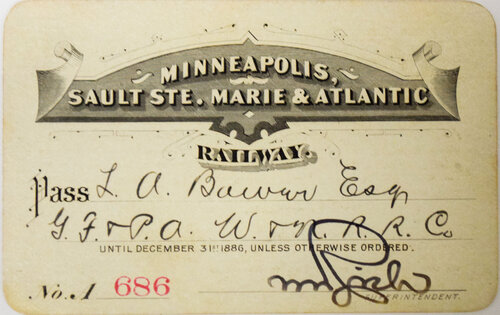 MINNEAPOLIS,
SAULT STE. MARIE & ATLANTIC
RAILWAY.
Pass L. A. Bower Esq
G. F. & P. A. W. & N. R. R. Co
UNTIL DECEMBER 31ST 1886, UNLESS OTHERWISE ORDERED.
No. A 686
SUPERINTENDENT.